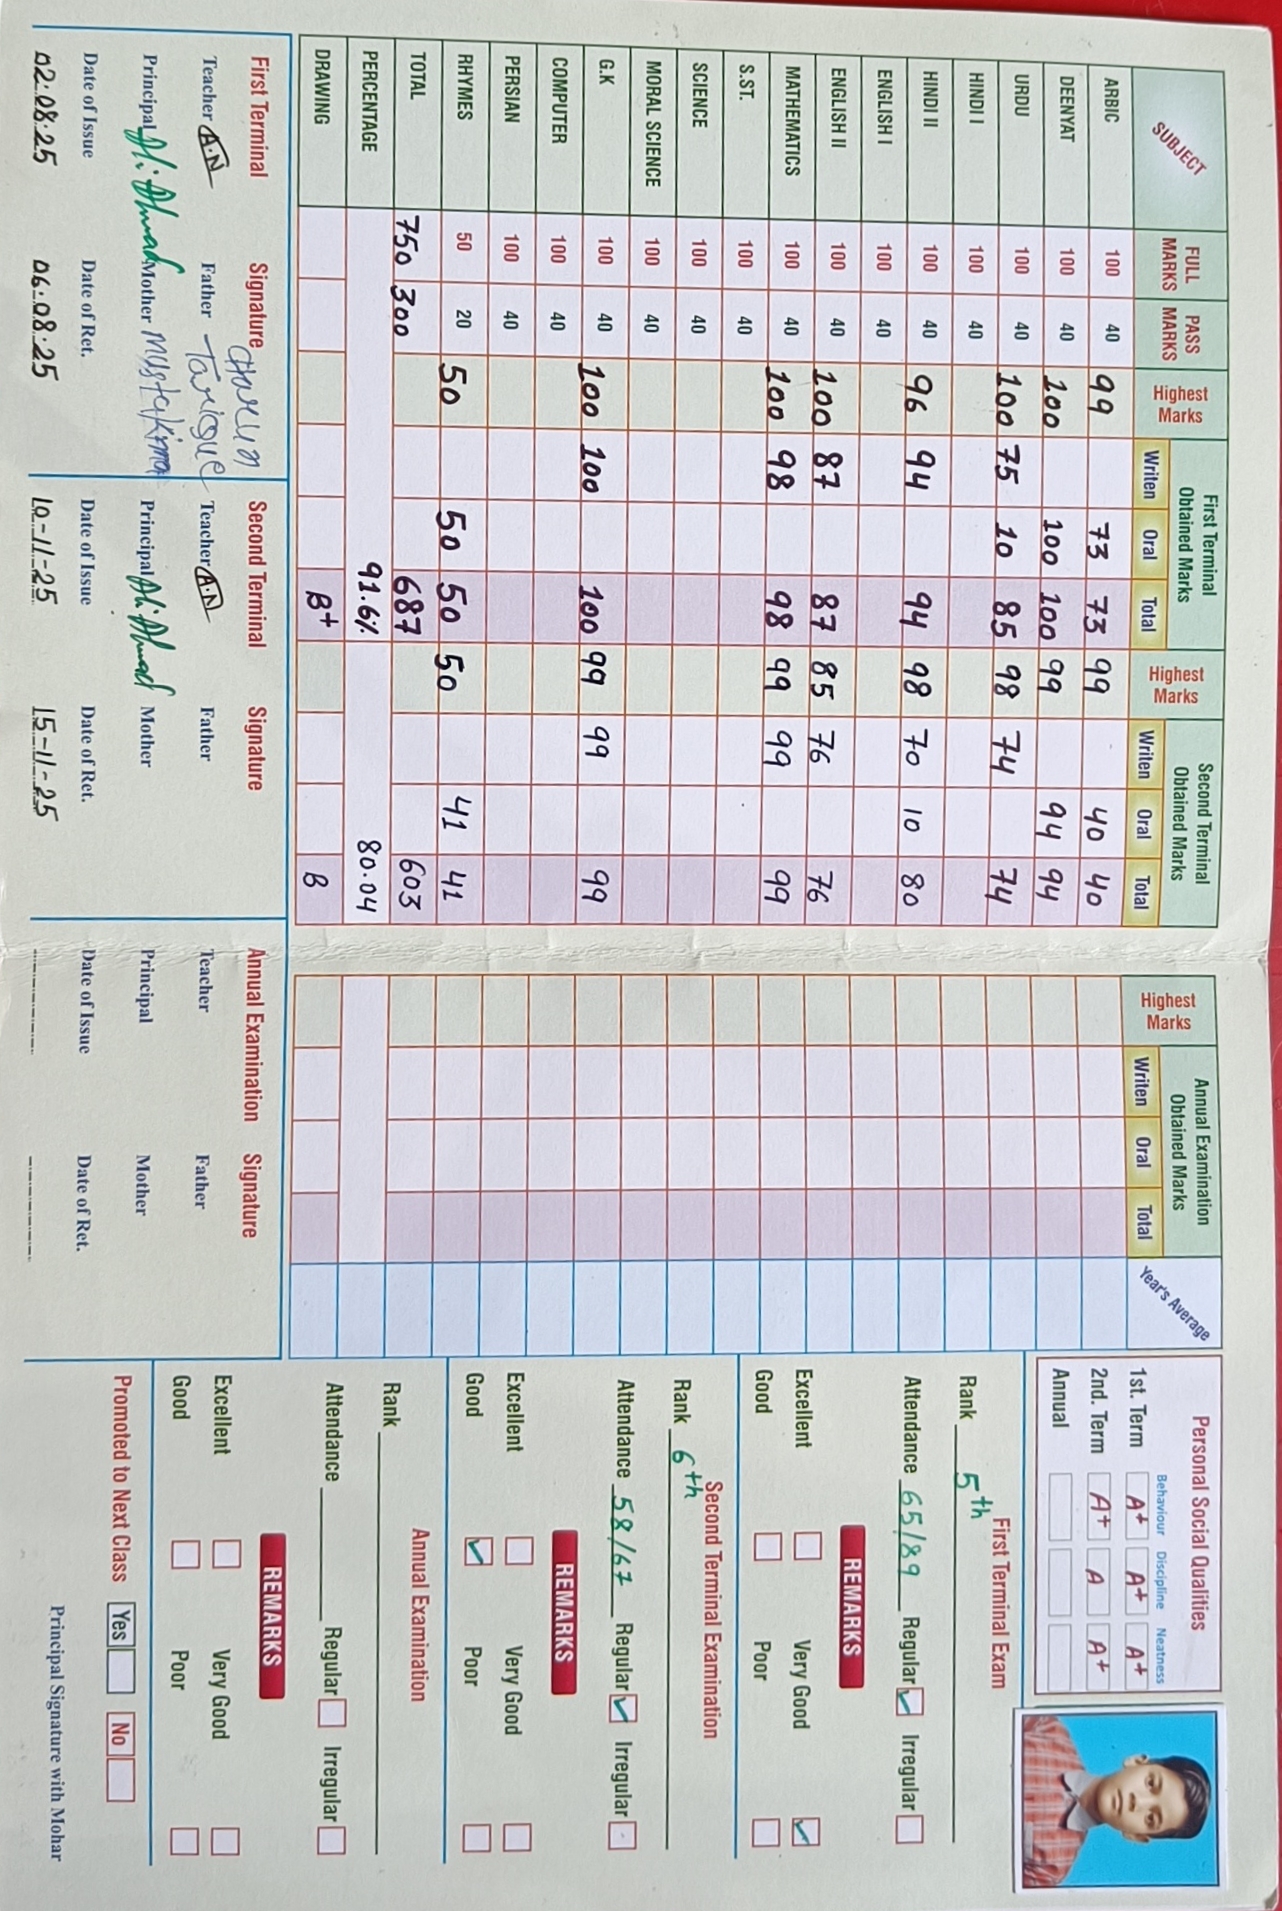 SUBJECT FULL MARKS PASS MARKS Highest Marks First Terminal Obtained Marks Writen Oral Total Highest Marks Second Terminal Obtained Marks Writen Oral Total Highest Marks Annual Examination Obtained Marks Writen Oral Total Year's Average
ARBIC 100 40 99 73 73 99 40 40
DEENYAT 100 40 100 100 100 99 94 94
URDU 100 40 100 75 10 85 98 74 74
HINDI I 100 40
HINDI II 100 40 96 94 94 98 70 10 80
ENGLISH I 100 40
ENGLISH II 100 40 100 87 87 85 76 76
MATHEMATICS 100 40 100 98 98 99 99 99
S.ST. 100 40
SCIENCE 100 40
MORAL SCIENCE 100 40
G.K 100 40 100 100 100 99 99 99
COMPUTER 100 40
PERSIAN 100 40
RHYMES 50 20 50 50 50 50 41 41
TOTAL 750 300 687 603
PERCENTAGE 91.6% 80.04
DRAWING B+ B
First Terminal Signature
Teacher A.N Father Tarique
Principal Ali Ahmad Mother Mustakima
Date of Issue Date of Ret.
02:08:25 06:08:25
Second Terminal Signature
Teacher A.N Father
Principal Ali Ahmad Mother
Date of Issue Date of Ret.
10-11-25 15-11-25
Annual Examination Signature
Teacher Father
Principal Mother
Date of Issue Date of Ret.
Personal Social Qualities
Behaviour Discipline Neatness
1st. Term A+ A+ A+
2nd. Term A+ A A+
Annual
First Terminal Exam
Rank 5th
Attendance 65/89 Regular Irregular
REMARKS
Excellent Very Good
Good Poor
Second Terminal Examination
Rank 6th
Attendance 58/67 Regular Irregular
REMARKS
Excellent Very Good
Good Poor
Annual Examination
Rank
Attendance Regular Irregular
REMARKS
Excellent Very Good
Good Poor
Promoted to Next Class Yes No
Principal Signature with Mohar